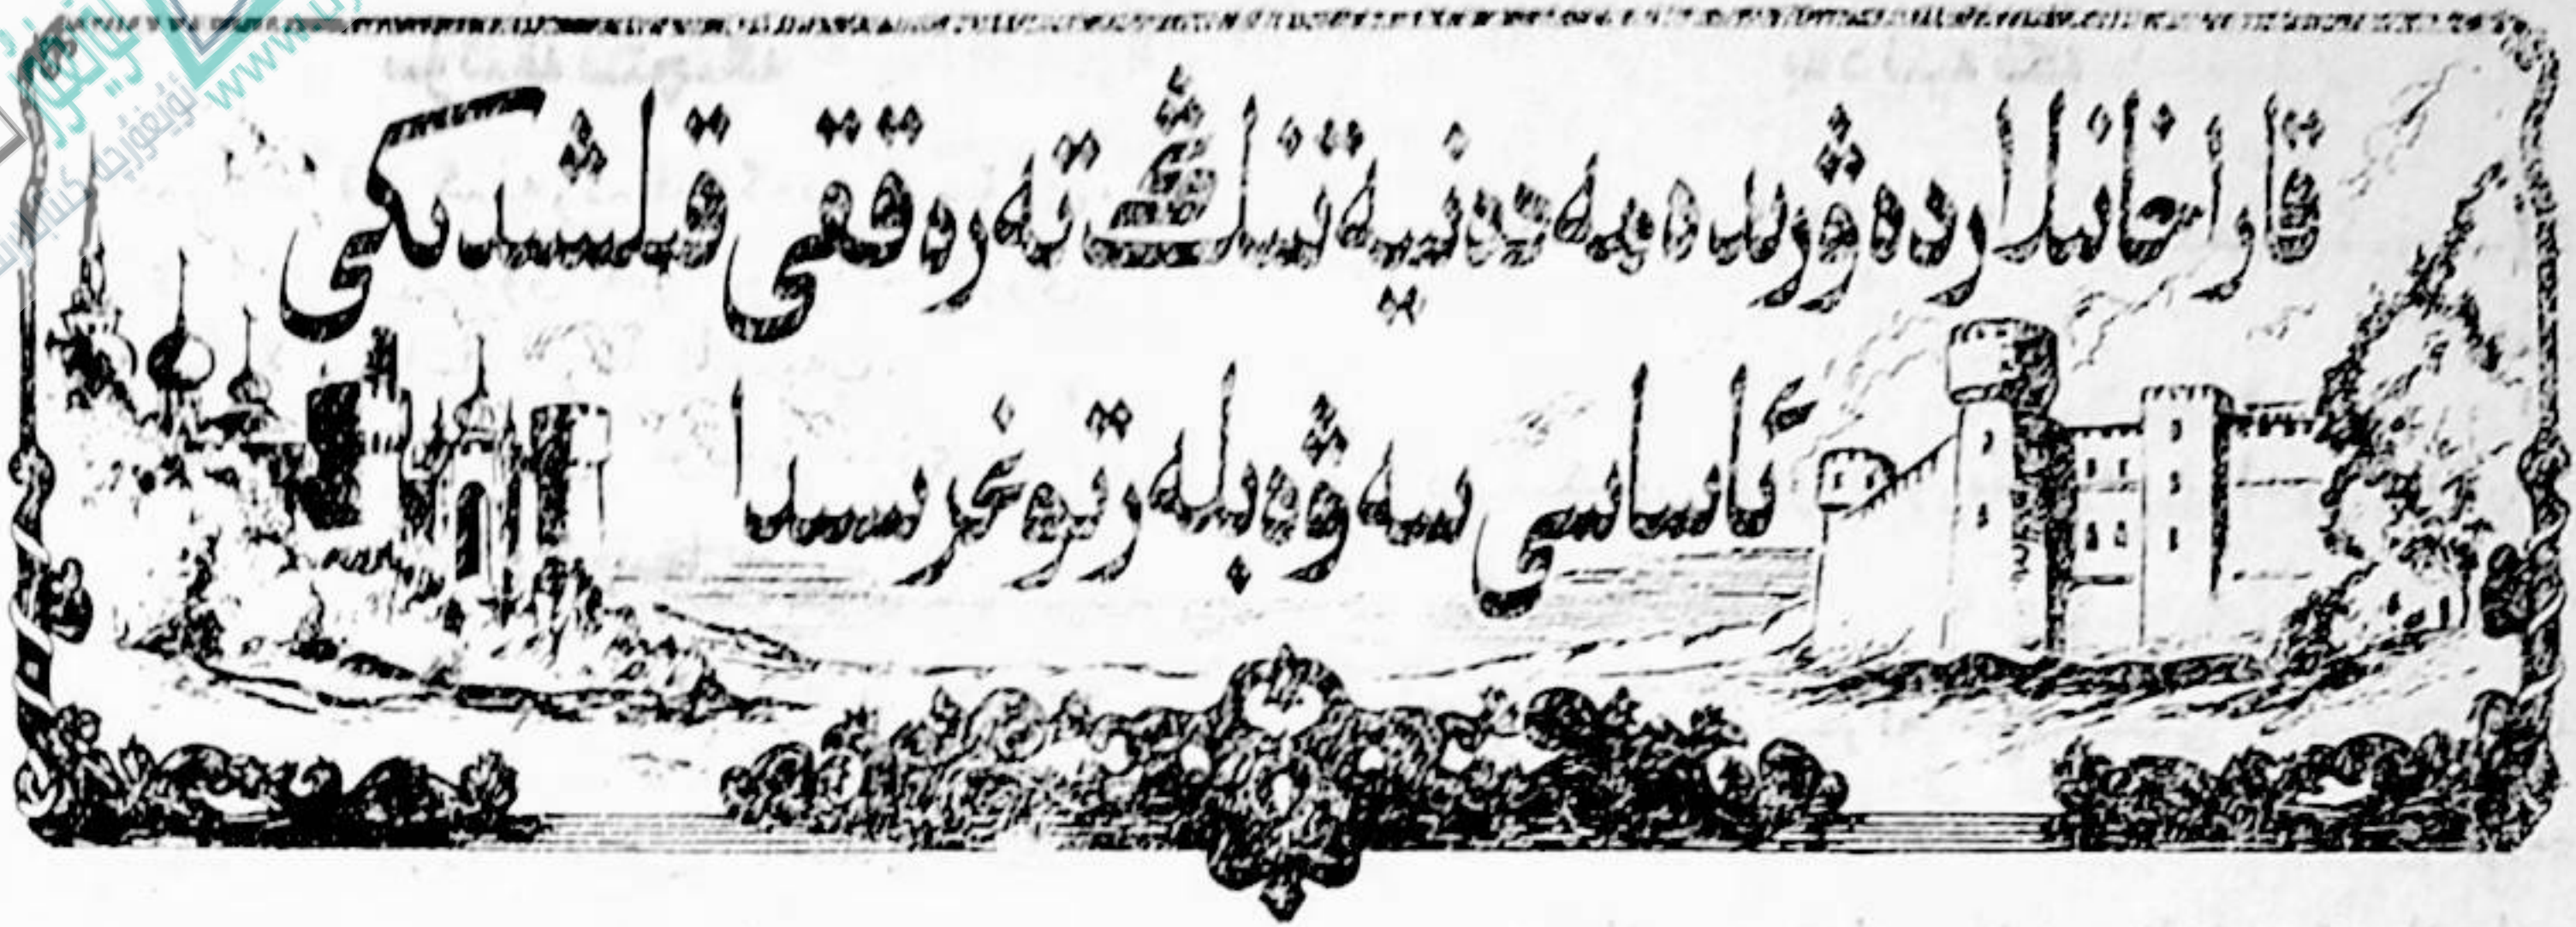 قاراخانلار دەۋرىدە مەدەنىيەتنىڭ تەرەققى قىلىشىدىكى
ئاساسى سەۋەبلەر توغرىسىدا